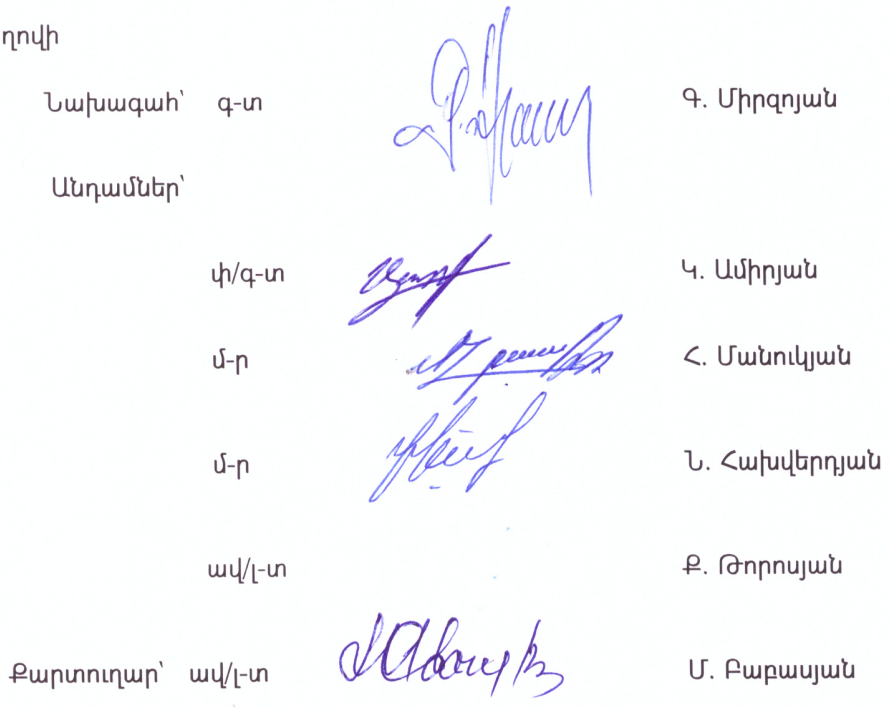 ղովի
Նախագահ՝ գ-տ Գ. Միրզոյան
Անդամներ՝
փ/գ-տ Կ. Ամիրյան
մ-ր Հ. Մանուկյան
մ-ր Ն. Հախվերդյան
ավ/լ-տ Ք. Թորոսյան
Քարտուղար՝ ավ/լ-տ Մ. Բաբասյան